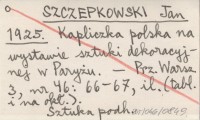 SZCZEPKOWSKI Jan
1925. Kapliczka polska na
wystawie sztuki dekoracyj-
nej w Paryżu. — Prz. Warsz.
3, nr 46: 66-67, il. (tabl.
i na okł.).
Sztuka podh.